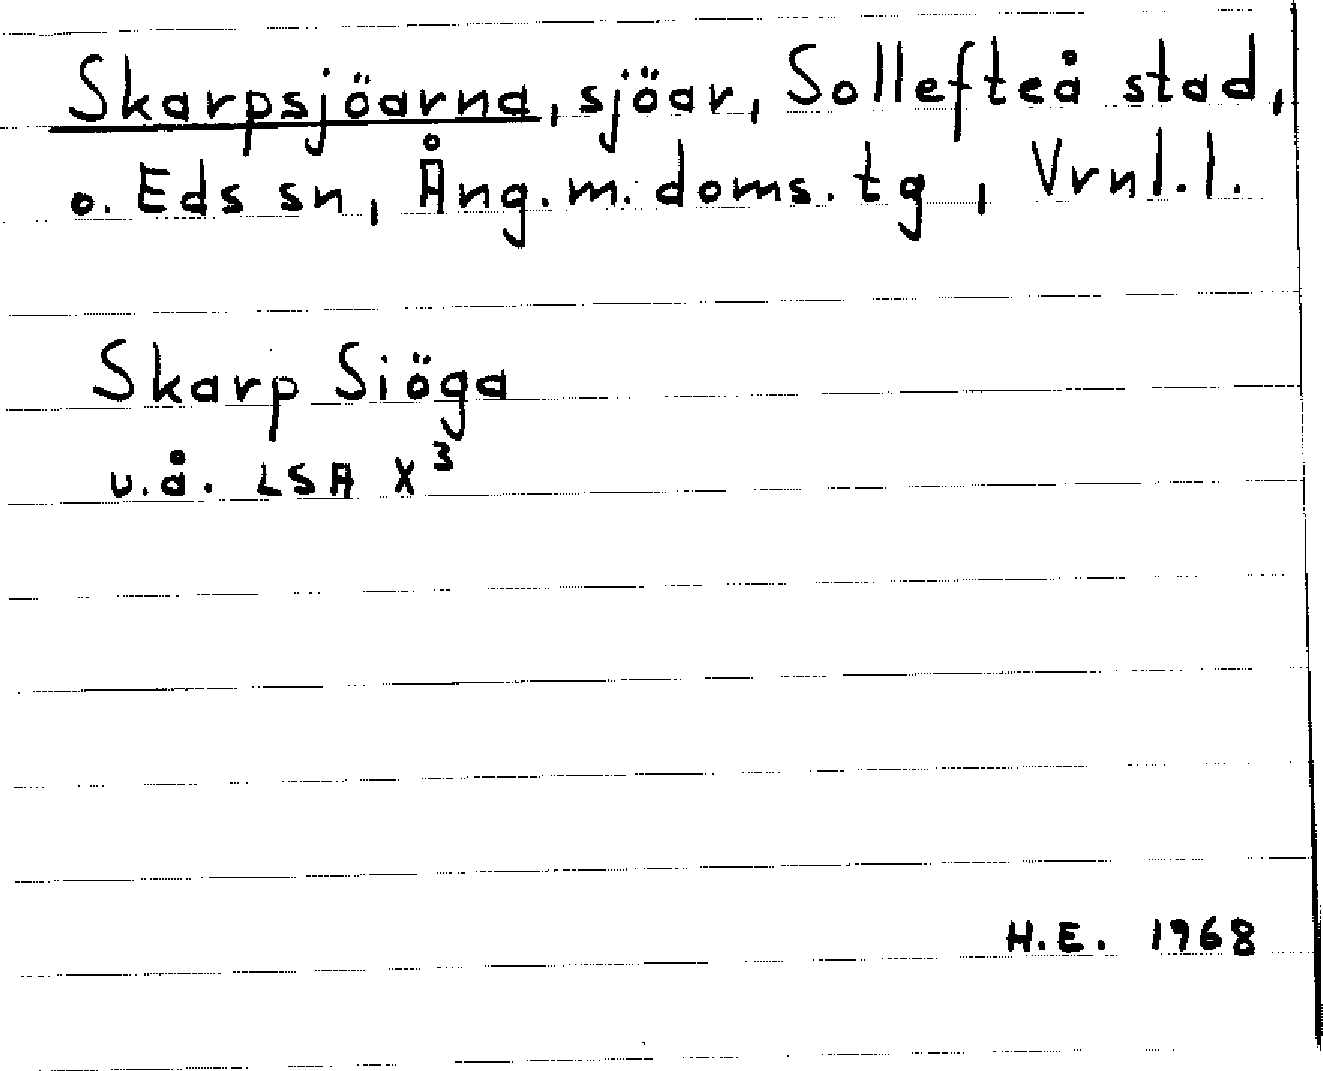 Skarpsjöarna, sjöar, Sollefteå stad,
o. Eds sn, Ång. m. doms. tg, Vrnl. l.
Skarp Siöga
u.å. LSA X³
H.E. 1968